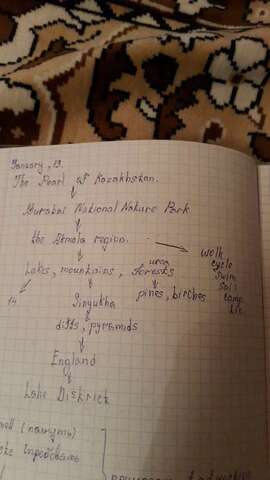 January, 19.
The Pearl of Kazakhstan.
Burabai National Nature Park
the Akmola region.
walk
cycle
swim
sail
camp
Lakes, mountains, forests
14
Sinyukha
pines, birches
cliffs, pyramids
England
Lake District